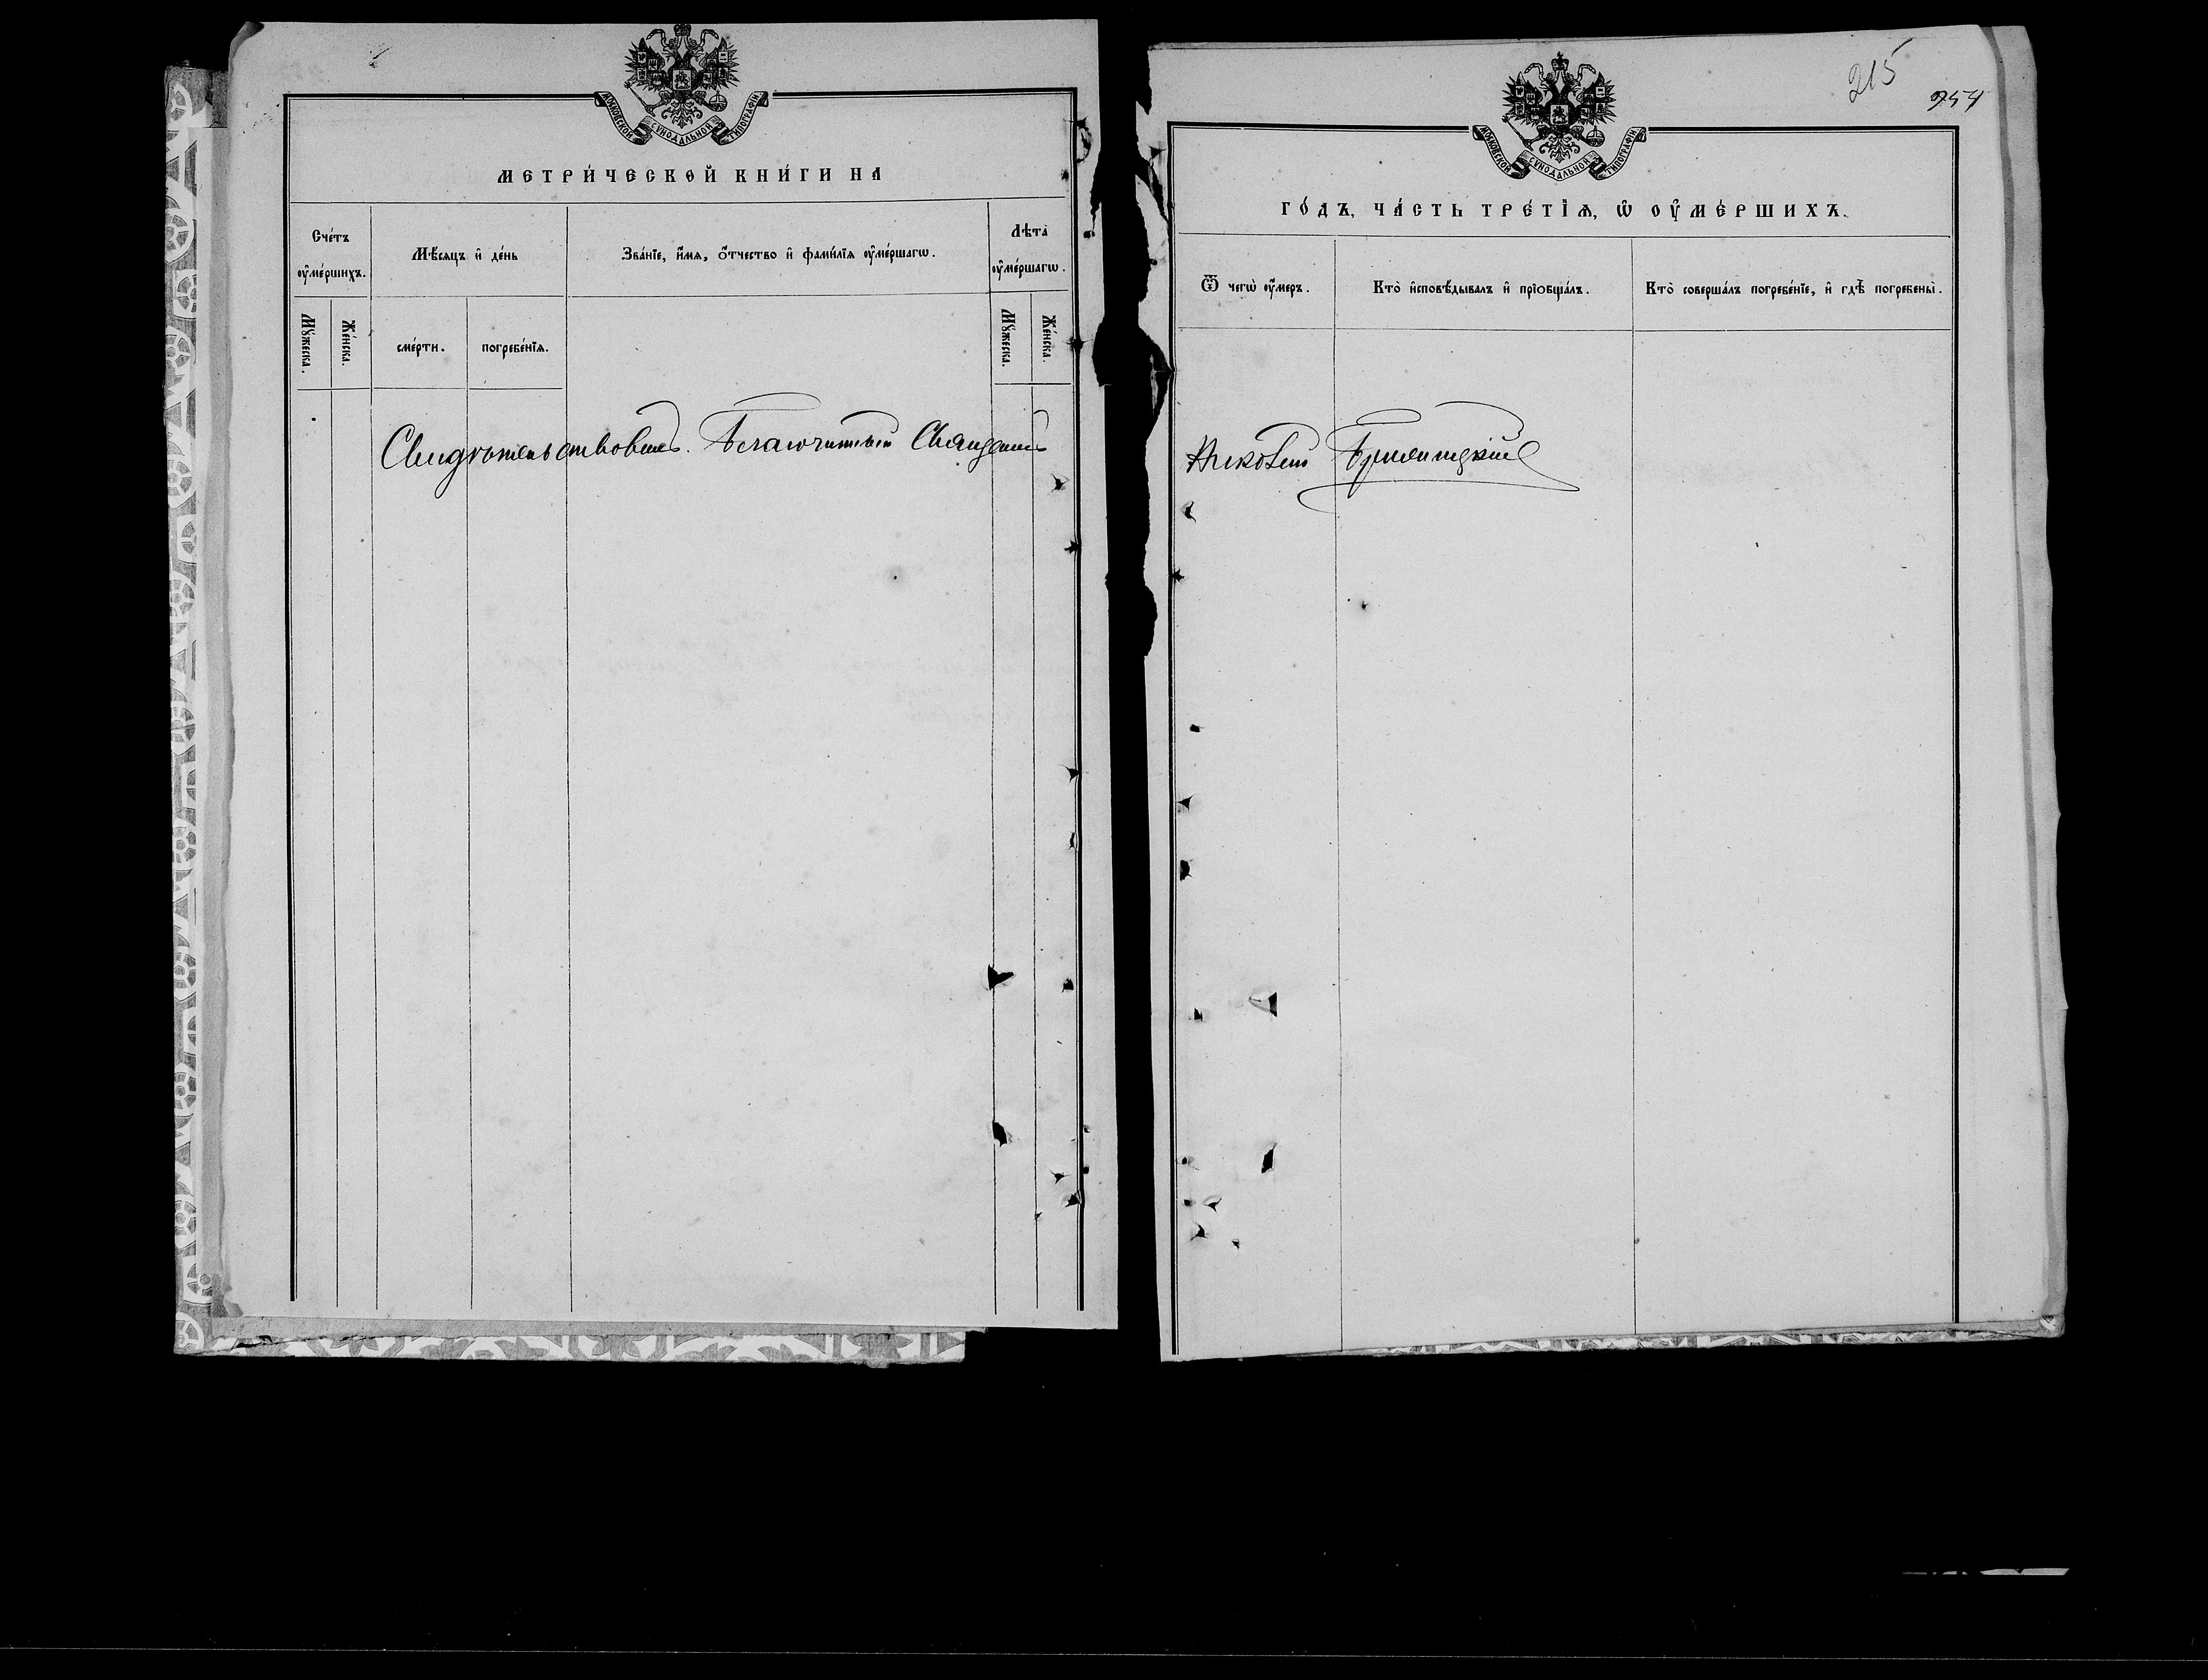 МОСКОВСКОЙ СѴНОДАЛЬНОЙ ТИПОГРАФІИ.
МЕТРИ́ЧЕСКОЙ КНИ́ГИ НА
Сче́тъ ᲂу҆ме́ршихъ.
Мѣ́сяцъ и҆ де́нь
Зва́нїе, и҆́мѧ, ѻ҆́тчество и҆ фами́лїѧ ᲂу҆ме́ршагѡ.
Лѣ́та ᲂу҆ме́ршагѡ.
Мꙋ́жеска.
Же́нска.
сме́рти.
погребе́нїѧ.
Мꙋ́жеска.
Же́нска.
Свидѣтельствовалъ. Благочинный Священникъ
215
254
МОСКОВСКОЙ СѴНОДАЛЬНОЙ ТИПОГРАФІИ.
ГО́ДЪ, ЧА́СТЬ ТРЕ́ТЇѦ, Ѡ҆ ᲂУ҆МЕ́РШИХЪ.
Ѿ чегѡ̀ ᲂу҆́меръ.
Кто̀ и҆сповѣ́дывалъ и҆ прїѻбща́лъ.
Кто̀ соверша́лъ погребе́нїе, и҆ гдѣ̀ погребены̀.